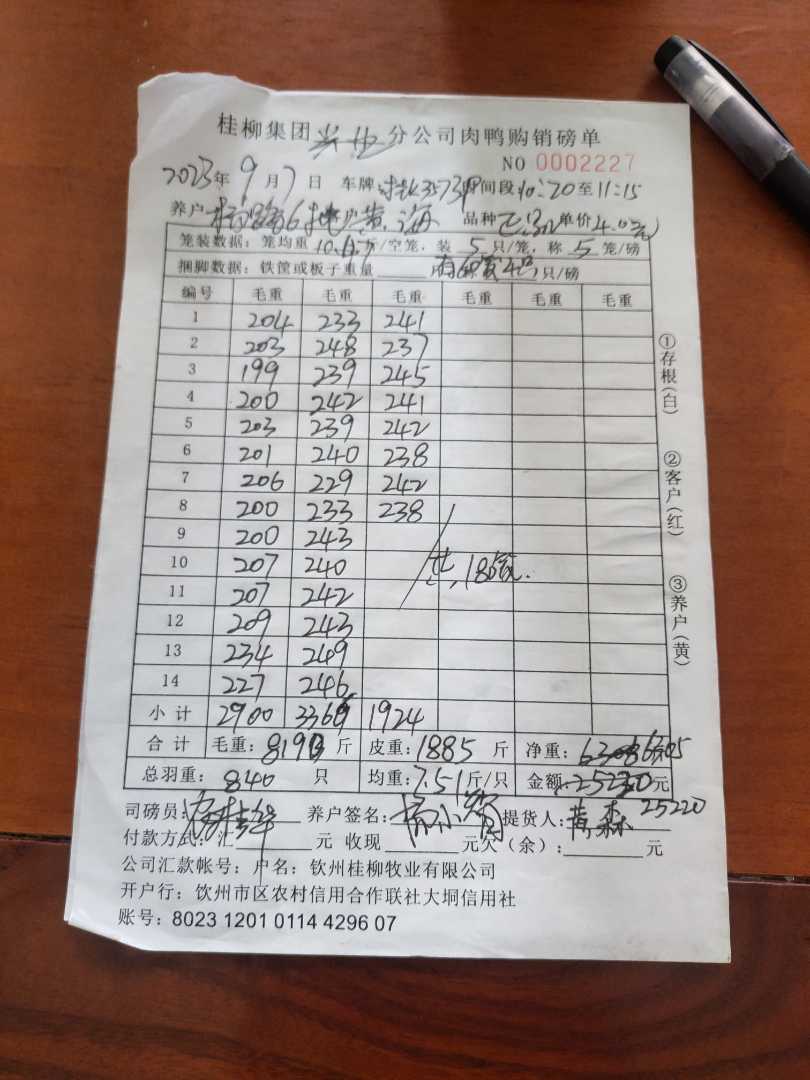 桂柳集团兴业分公司肉鸭购销磅单
NO 0002227
2023年9月7日 车牌 时间段10:20至11:15
养户 品种 单价4.0元
笼装数据:笼均重 斤/空笼,装5只/笼,称5笼/磅
捆脚数据:铁筐或板子重量 只/磅
编号 毛重 毛重 毛重 毛重 毛重 毛重
1 204 233 241
2 203 248 237
3 199 239 245
4 200 242 241
5 203 239 242
6 201 240 238
7 206 229 242
8 200 233 238
9 200 243
10 207 240 共,186笼.
11 207 242
12 209 243
13 234 249
14 227 246
小计 2900 3366 1924
合计 毛重:8190斤 皮重:1885斤 净重:6305
总羽重:840只 均重:7.51斤/只 金额:25230元
25220
司磅员: 养户签名: 提货人:黄森
付款方式:汇 元 收现 元欠(余): 元
公司汇款帐号:户名:钦州桂柳牧业有限公司
开户行:钦州市区农村信用合作联社大垌信用社
账号:8023 1201 0114 4296 07
①存根(白)
②客户(红)
③养户(黄)